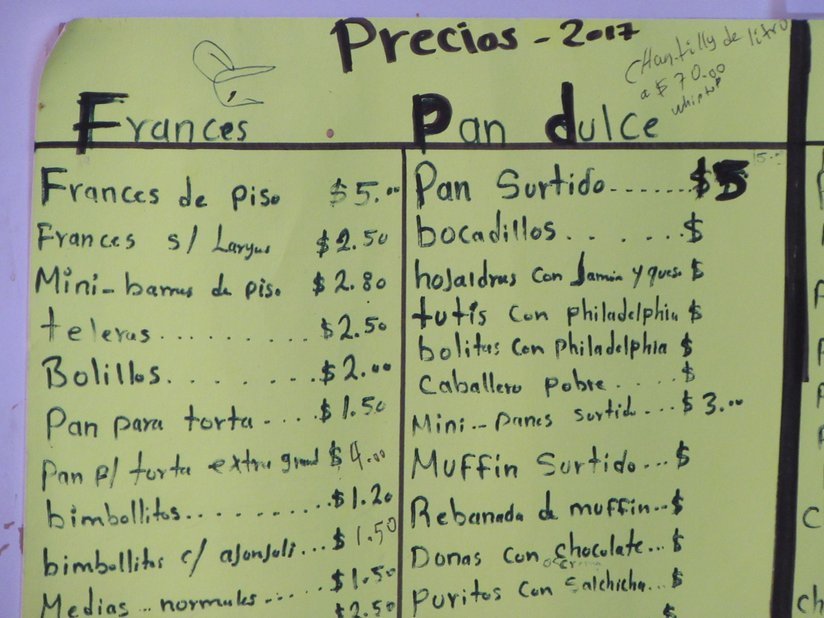 Precios - 2017
CHantilly de litro
a $70.00
Frances
Frances de piso $5.00
Frances s/ Largus $2.50
Mini-barras de piso $2.80
teleras.......... $2.50
Bolillos........ $2.00
Pan para torta.... $1.50
Pan p/ torta extra grand $4.00
bimbollitos........... $1.20
bimbollitos c/ ajonjoli... $1.50
Medias - normales..... $1.50
$2.50
Pan dulce
Pan Surtido....... $5
bocadillos...... $
hojaldras con Jamón y queso $
tutis con philadelphia $
bolitas con philadelphia $
Caballero pobre..... $
Mini-panes surtido... $3.00
Muffin Surtido... $
Rebanada de muffin.. $
Donas con chocolate... $
Puritos con Salchicha... $
$